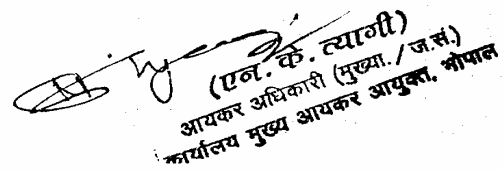 (एन. के. त्यागी)
आयकर अधिकारी (मुख्या. / ज.सं.)
कार्यालय मुख्य आयकर आयुक्त, भोपाल